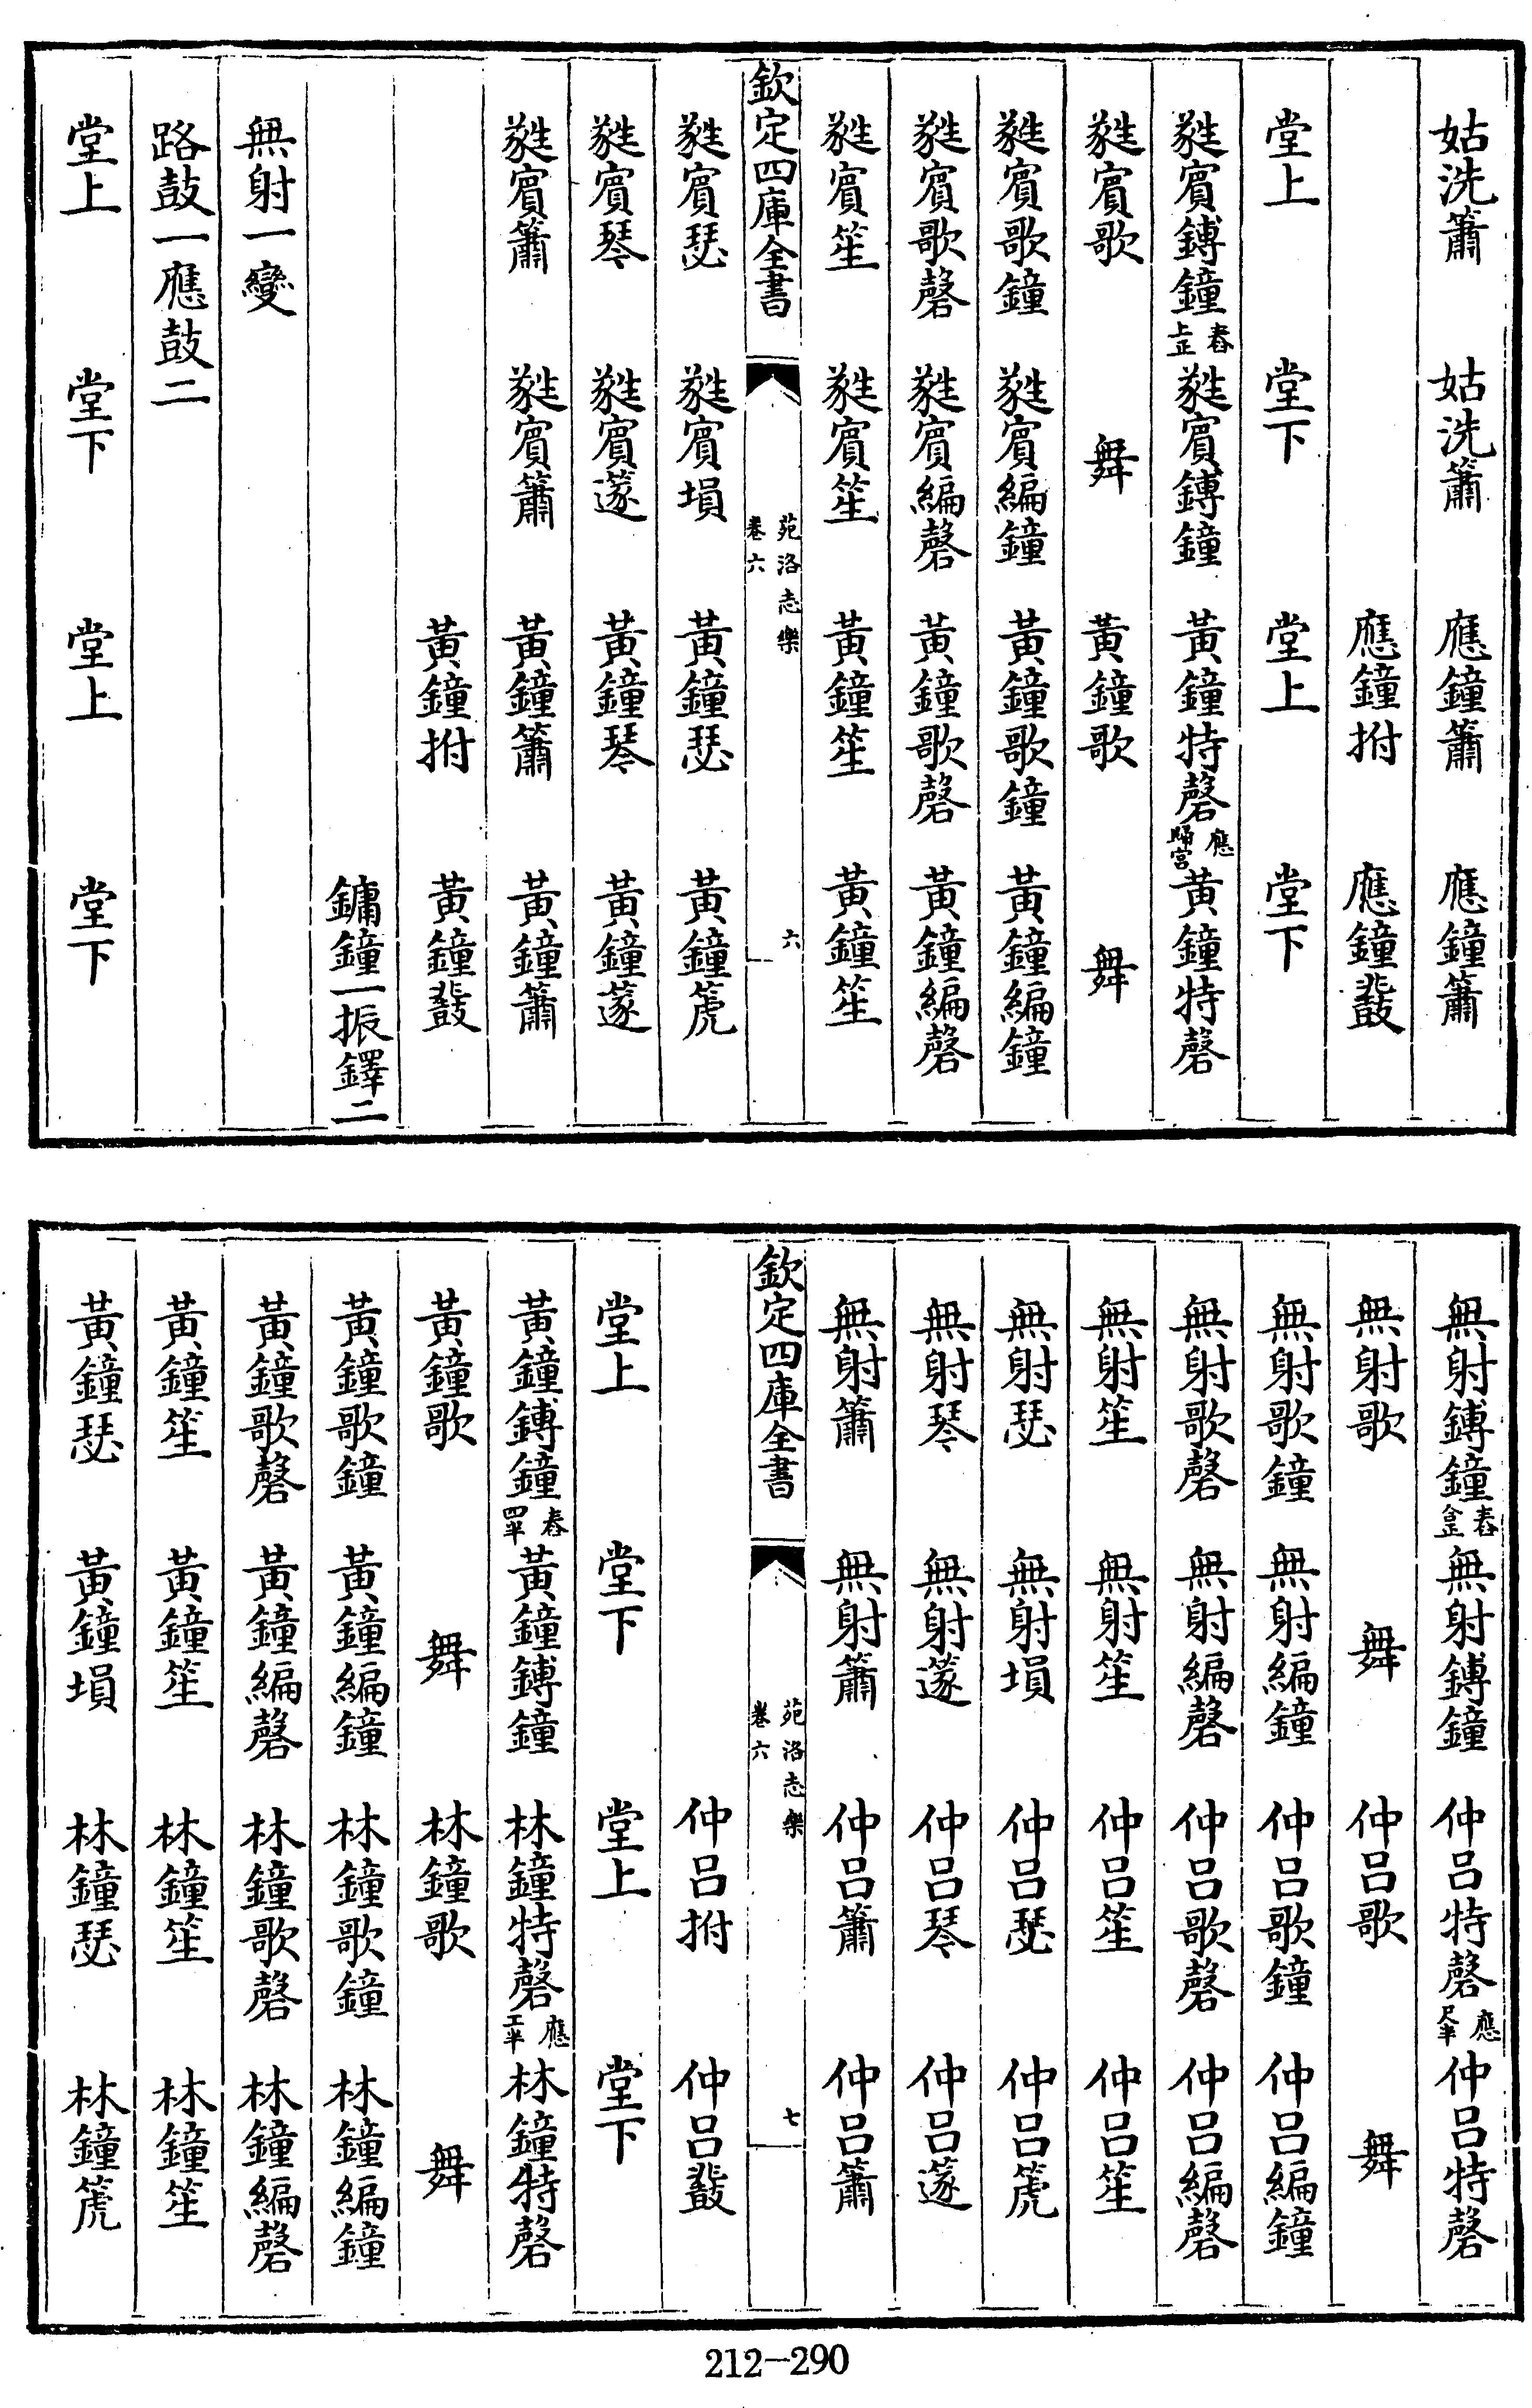 姑洗簫　姑洗簫　應鐘簫　應鐘簫
應鐘拊　應鐘鼗
堂上　堂下　堂上　堂下
蕤賓鎛鐘舂上正　蕤賓鎛鐘　黃鐘特磬應歸宮　黃鐘特磬
蕤賓歌　舞　黃鐘歌　舞
蕤賓歌鐘　蕤賓編鐘　黃鐘歌鐘　黃鐘編鐘
蕤賓歌磬　蕤賓編磬　黃鐘歌磬　黃鐘編磬
蕤賓笙　蕤賓笙　黃鐘笙　黃鐘笙
欽定四庫全書　苑洛志樂　卷六　六
蕤賓瑟　蕤賓塤　黃鐘瑟　黃鐘篪
蕤賓琴　蕤賓篴　黃鐘琴　黃鐘篴
蕤賓簫　蕤賓簫　黃鐘簫　黃鐘簫
黃鐘拊　黃鐘鼗
鏞鐘一振鐸二
無射一變
路鼓一應鼓二
堂上　堂下　堂上　堂下
無射鎛鐘舂　無射鎛鐘　仲呂特磬應　仲呂特磬
無射歌　舞　仲呂歌　舞
無射歌鐘　無射編鐘　仲呂歌鐘　仲呂編鐘
無射歌磬　無射編磬　仲呂歌磬　仲呂編磬
無射笙　無射笙　仲呂笙　仲呂笙
無射瑟　無射塤　仲呂瑟　仲呂篪
無射琴　無射篴　仲呂琴　仲呂篴
無射簫　無射簫　仲呂簫　仲呂簫
欽定四庫全書　苑洛志樂　卷六　七
仲呂拊　仲呂鼗
堂上　堂下　堂上　堂下
黃鐘鎛鐘舂四半　黃鐘鎛鐘　林鐘特磬應工半　林鐘特磬
黃鐘歌　舞　林鐘歌　舞
黃鐘歌鐘　黃鐘編鐘　林鐘歌鐘　林鐘編鐘
黃鐘歌磬　黃鐘編磬　林鐘歌磬　林鐘編磬
黃鐘笙　黃鐘笙　林鐘笙　林鐘笙
黃鐘瑟　黃鐘塤　林鐘瑟　林鐘篪
212-290